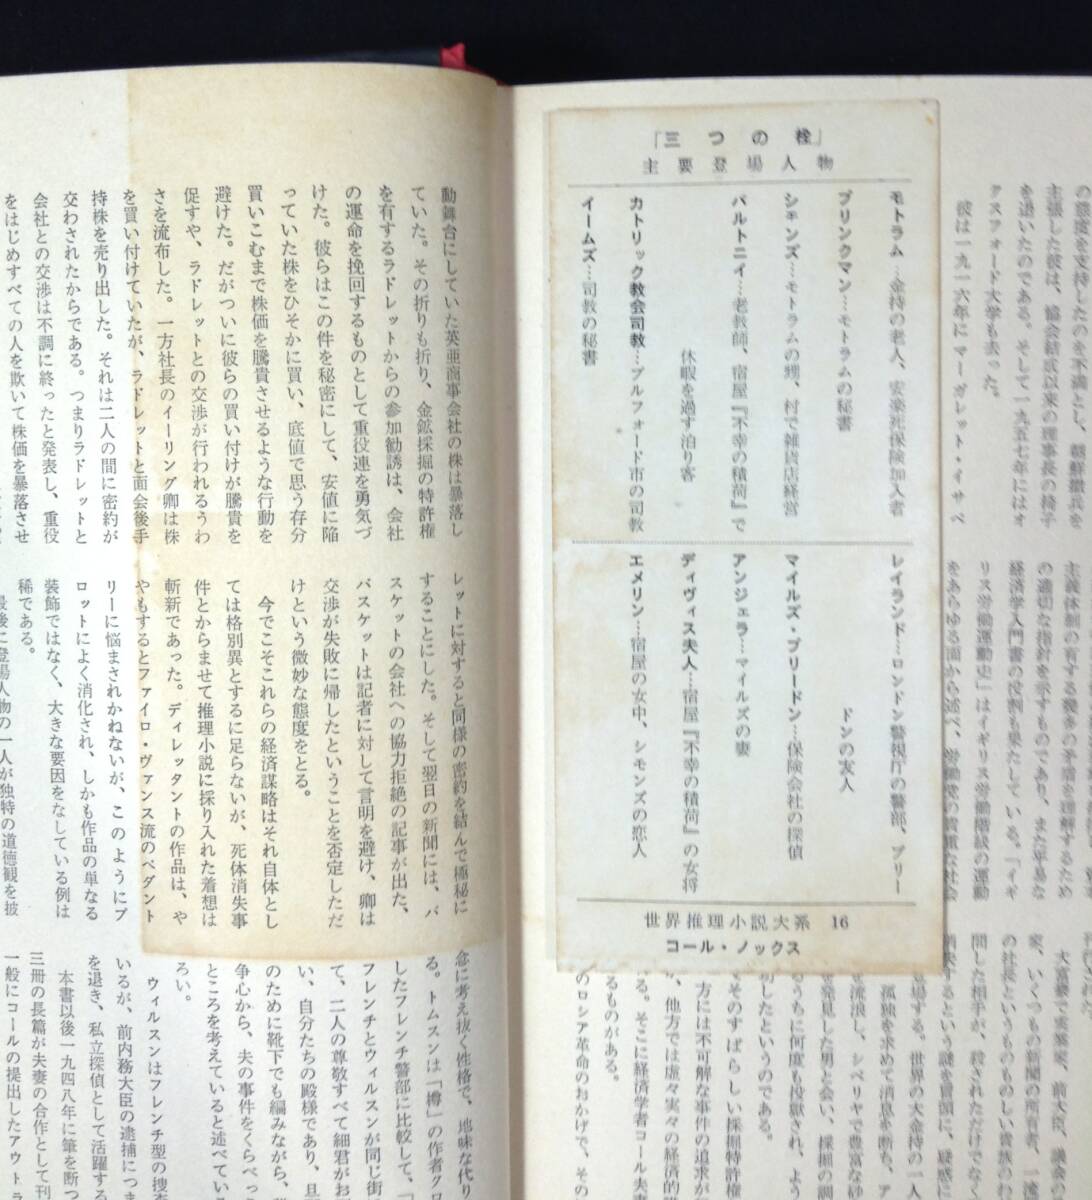 の態度を支持したのを不満とし、
主張した彼は、協会結成以来の理事長の椅子
を退いたのである。そして一九五七年にはオ
クスフォード大学も去った。
彼は一九一六年にマーガレット・イサベ
主義体制の有する幾多の矛盾を理解するため
の適切な指針を示すものであり、また平易な
経済学入門書の役割も果たしている。「イギ
リス労働運動史」はイギリス労働階級の運動
をあらゆる面から述べ、労働党の貴重な社会
大富豪で実業家、前大臣、議会の
家、いくつもの新聞の所有者、一流
の社長というものものしい貴族の
問した相手が、殺されただけでなく
するという謎を冒頭に、疑惑
場する。世界の大金持の一人
孤独を求めて消息を断ち、ア
を流浪し、シベリヤで豊富な砂
を発見した男と会い、採掘の調
るうちに何度も投獄され、よう
功したというのである。
そのすばらしい採掘特許権
方には不可解な事件の追求が
、他方では虚々実々の経済的
る。そこに経済学者コール夫妻
るものがある。
のロシア革命のおかげで、その
「三つの栓」
主要登場人物
モトラム…金持の老人、安楽死保険加入者
ブリンクマン…モトラムの秘書
シモンズ…モトラムの甥、村で雑貨店経営
パルトニイ…老教師、宿屋『不幸の積荷』で
休暇を過す泊り客
カトリック教会司教…プルフォード市の司教
イームズ…司教の秘書
レイランド…ロンドン警視庁の警部、ブリー
ドンの友人
マイルズ・ブリードン…保険会社の探偵
アンジェラ…マイルズの妻
ディヴィス夫人…宿屋『不幸の積荷』の女将
エメリン…宿屋の女中、シモンズの恋人
世界推理小説大系 16
コール・ノックス
動舞台にしていた英亜商事会社の株は暴落し
ていた。その折りも折り、金鉱採掘の特許権
を有するラドレットからの参加勧誘は、会社
の運命を挽回するものとして重役連を勇気づ
けた。彼らはこの件を秘密にして、安値に陥
っていた株をひそかに買い、底値で思う存分
買いこむまで株価を騰貴させるような行動を
避けた。だがついに彼らの買い付けが騰貴を
促すや、ラドレットとの交渉が行われるうわ
さを流布した。一方社長のイーリング卿は株
を買い付けていたが、ラドレットと面会後手
持株を売り出した。それは二人の間に密約が
交わされたからである。つまりラドレットと
会社との交渉は不調に終ったと発表し、重役
をはじめすべての人を欺いて株価を暴落させ
レットに対すると同様の密約を結んで極秘に
することにした。そして翌日の新聞には、バ
スケットの会社への協力拒絶の記事が出た、
バスケットは記者に対して言明を避け、卿は
交渉が失敗に帰したということを否定しただ
けという微妙な態度をとる。
今でこそこれらの経済謀略はそれ自体とし
ては格別異とするに足らないが、死体消失事
件とからませて推理小説に採り入れた着想は
斬新であった。ディレッタントの作品は、や
やもするとファイロ・ヴァンス流のペダント
リーに悩まされかねないが、このようにプ
ロットによく消化され、しかも作品の単なる
装飾ではなく、大きな要因をなしている例は
稀である。
最後に登場人物の一人が独特の道徳観を披
念に考え抜く性格で、地味な代り
る。トムスンは「樽」の作者クロ
したフレンチ警部に比較して、「
フレンチとウィルスンが同じ街
て、二人の尊敬すべて細君がお
い、自分たちの殿様であり、旦
のために靴下でも編みながら、
争心から、夫の事件をくらべっ
ところを考えていると述べてい
ろい。
ウィルスンはフレンチ型の捜査
いるが、前内務大臣の逮捕につま
を退き、私立探偵として活躍する
本書以後一九四八年に筆を断つ
三冊の長篇が夫妻の合作として刊
一般にコールの提出したアウトラ